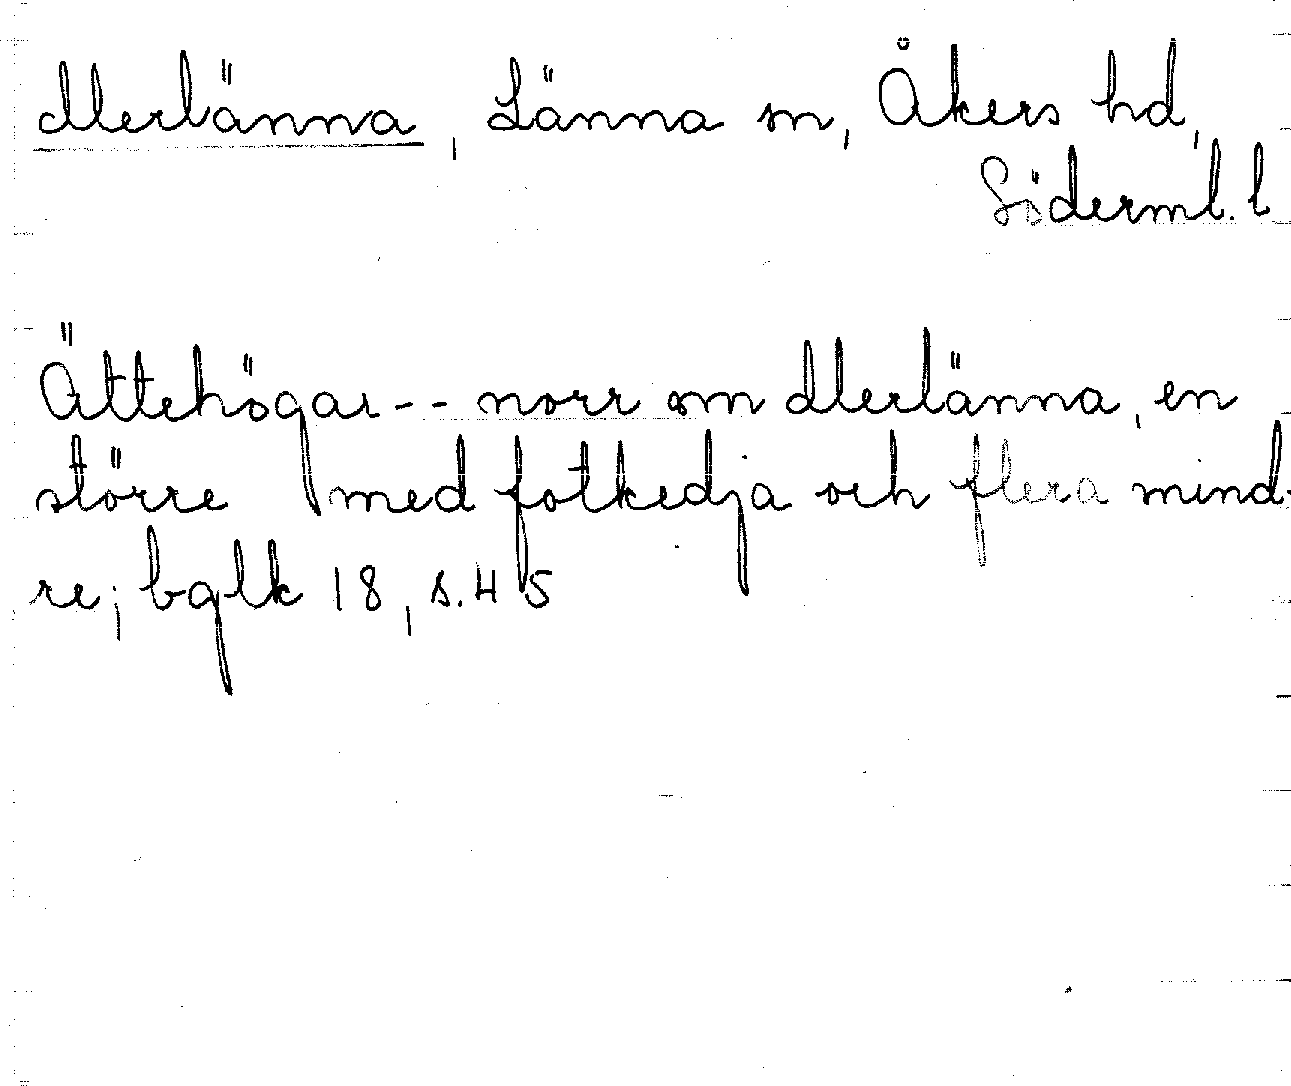 Merlänna, Länna sn, Åkers hd,
Söderml. l
Ättehögar-- norr om Merlänna, en
större med fotkedja och flera mind-
re; bglk 18, s.45